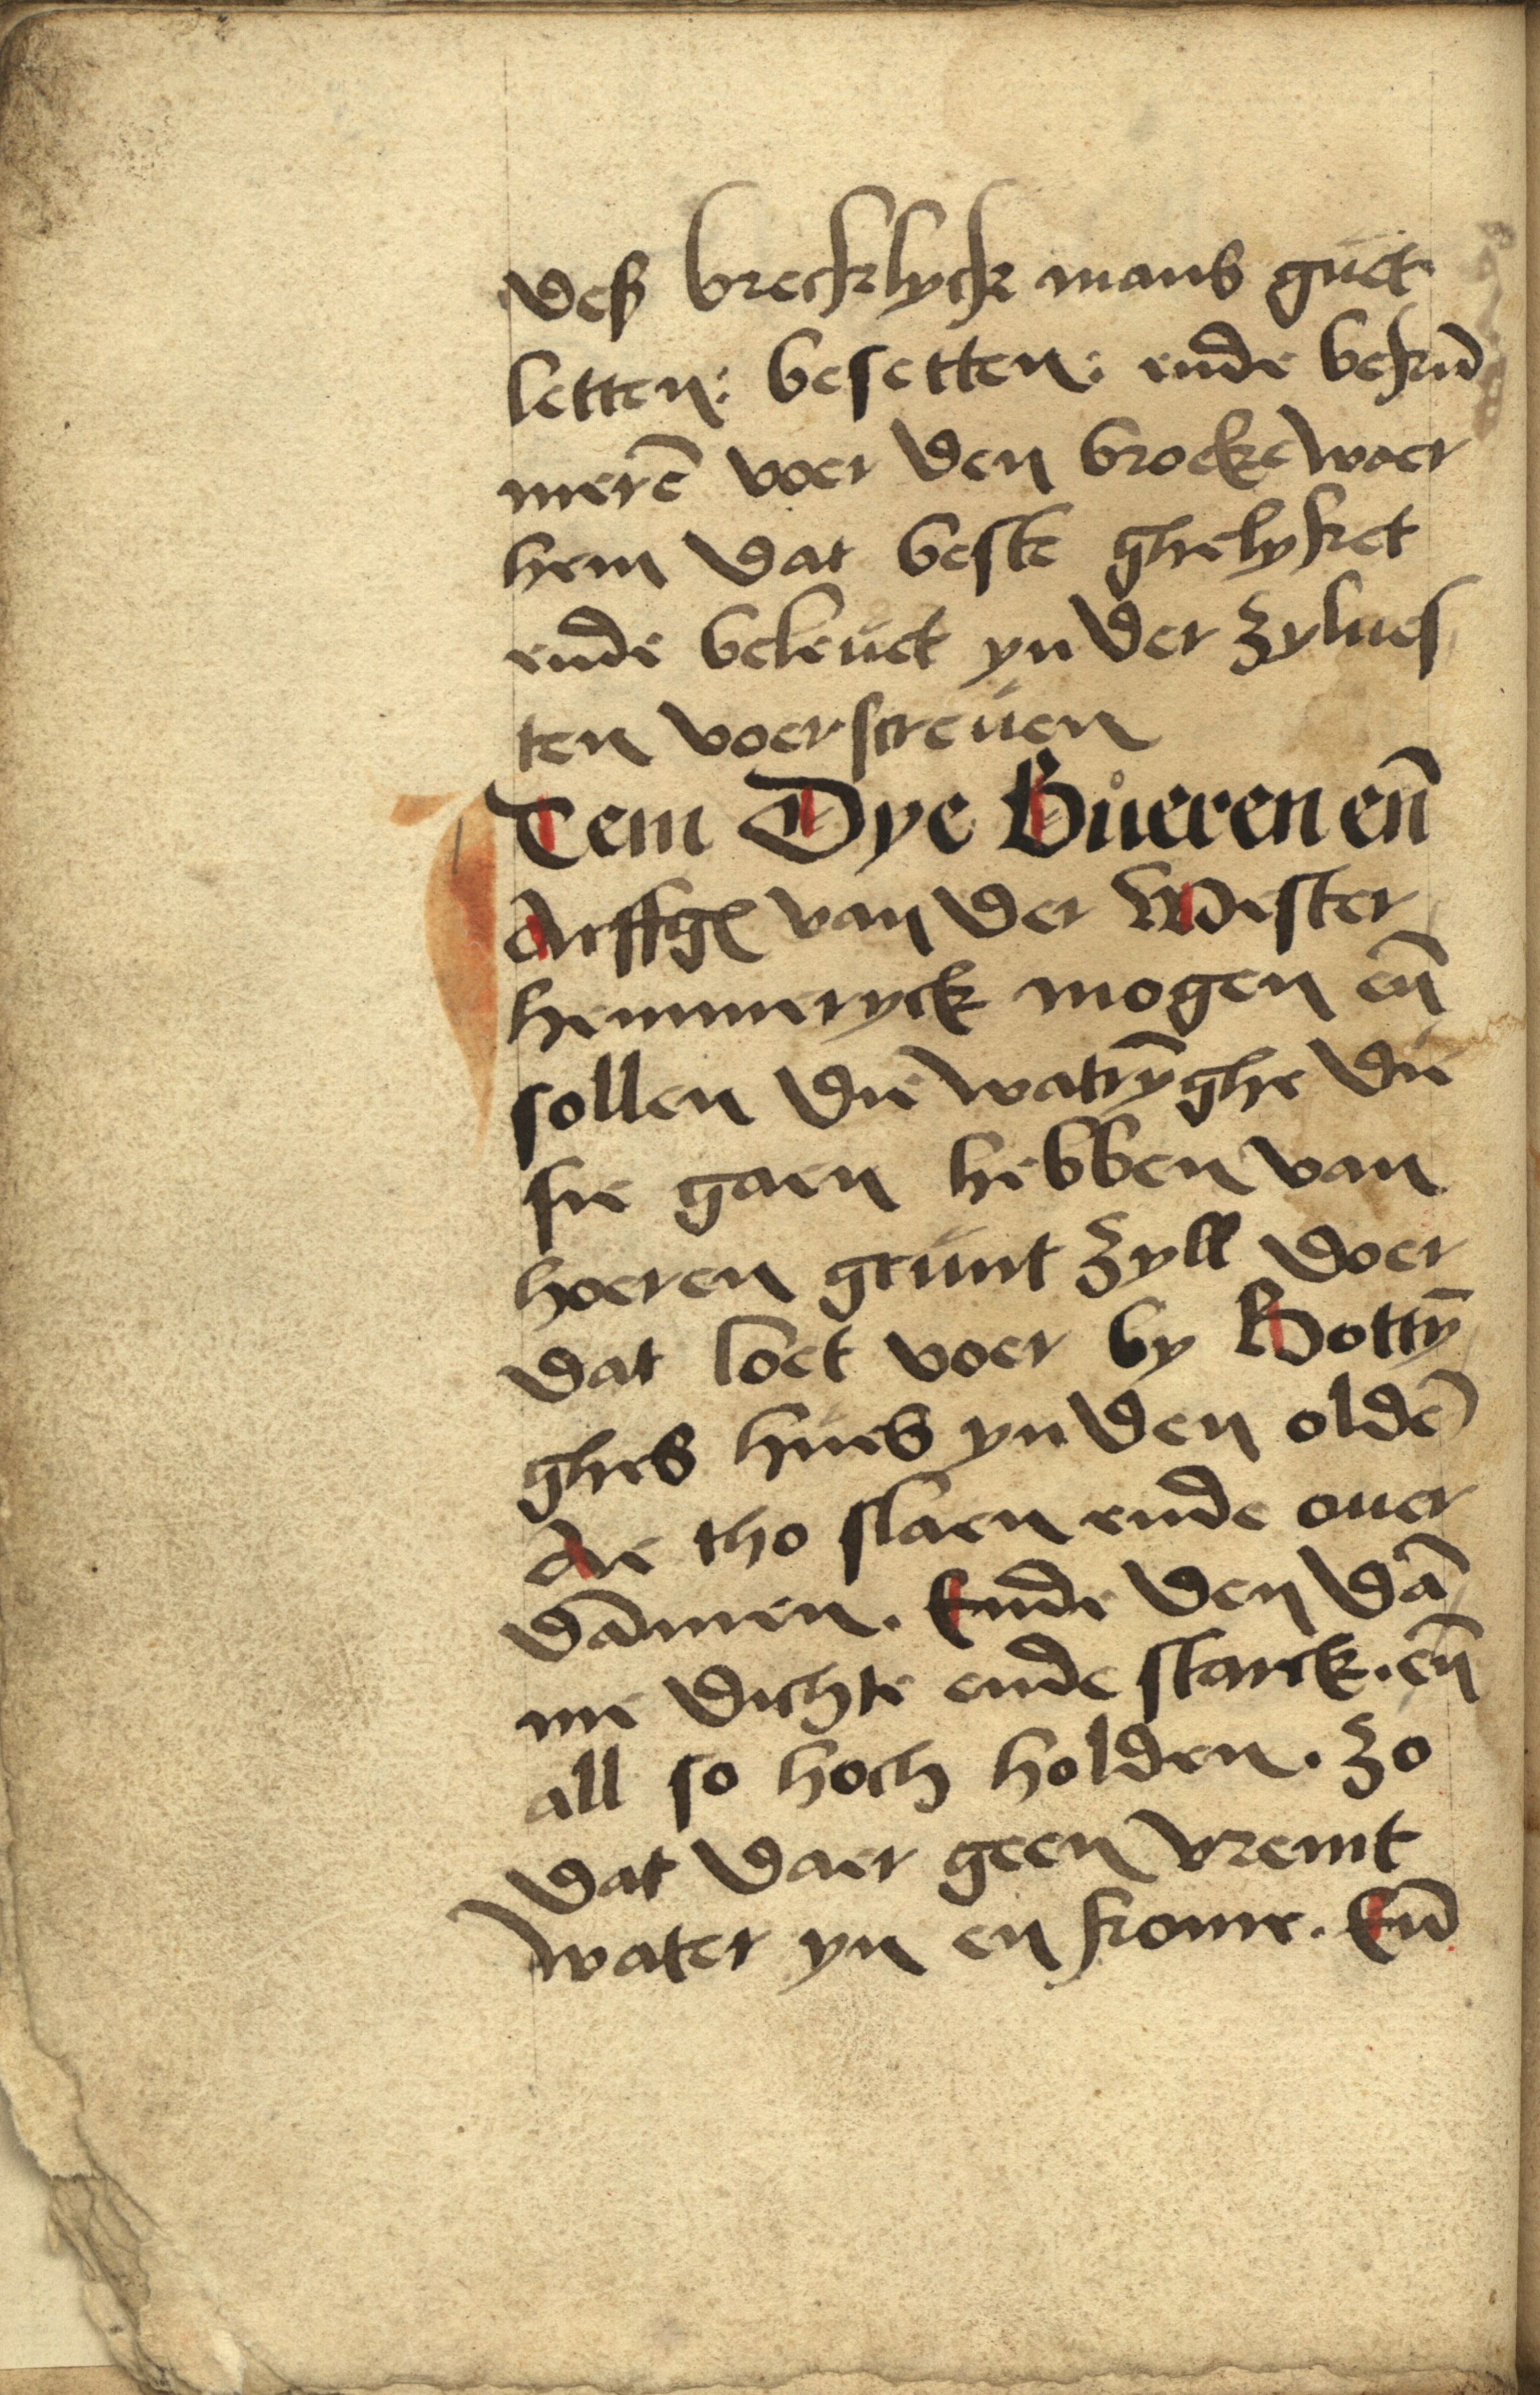 deß brecklyck mans guet
letten: besetten: ende bekū
merē voer den broeke woer
hem dat beste ghelyket
ende beleuet yn der zylues
ten voerscreuen
Item Dye Bůeren eñ
Arffgē van der Wester
hemmeryck mogen eñ
sollen die watrȳghe die
sie gaen hebben van
hoeren grunt zyll doer
dat loet voer by Bottȳ
ghes hues yn den oldē
Ae tho slaen ende ouer
dāmen. Ende den dā
me dichte ende starck. eñ
all so hoch holden. zo
dat daer geen vremt
water yn en kome. Eñ